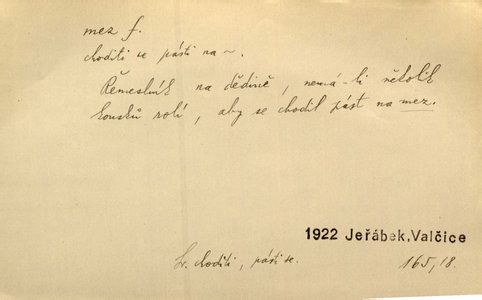 mez f.
choditi se pásti na ~.
Řemeslník na dědině, nemá-li několik
kousků rolí, aby se chodil pást na mez.
1922 Jeřábek, Valčice
Sr. choditi, pásti se.
165/18.